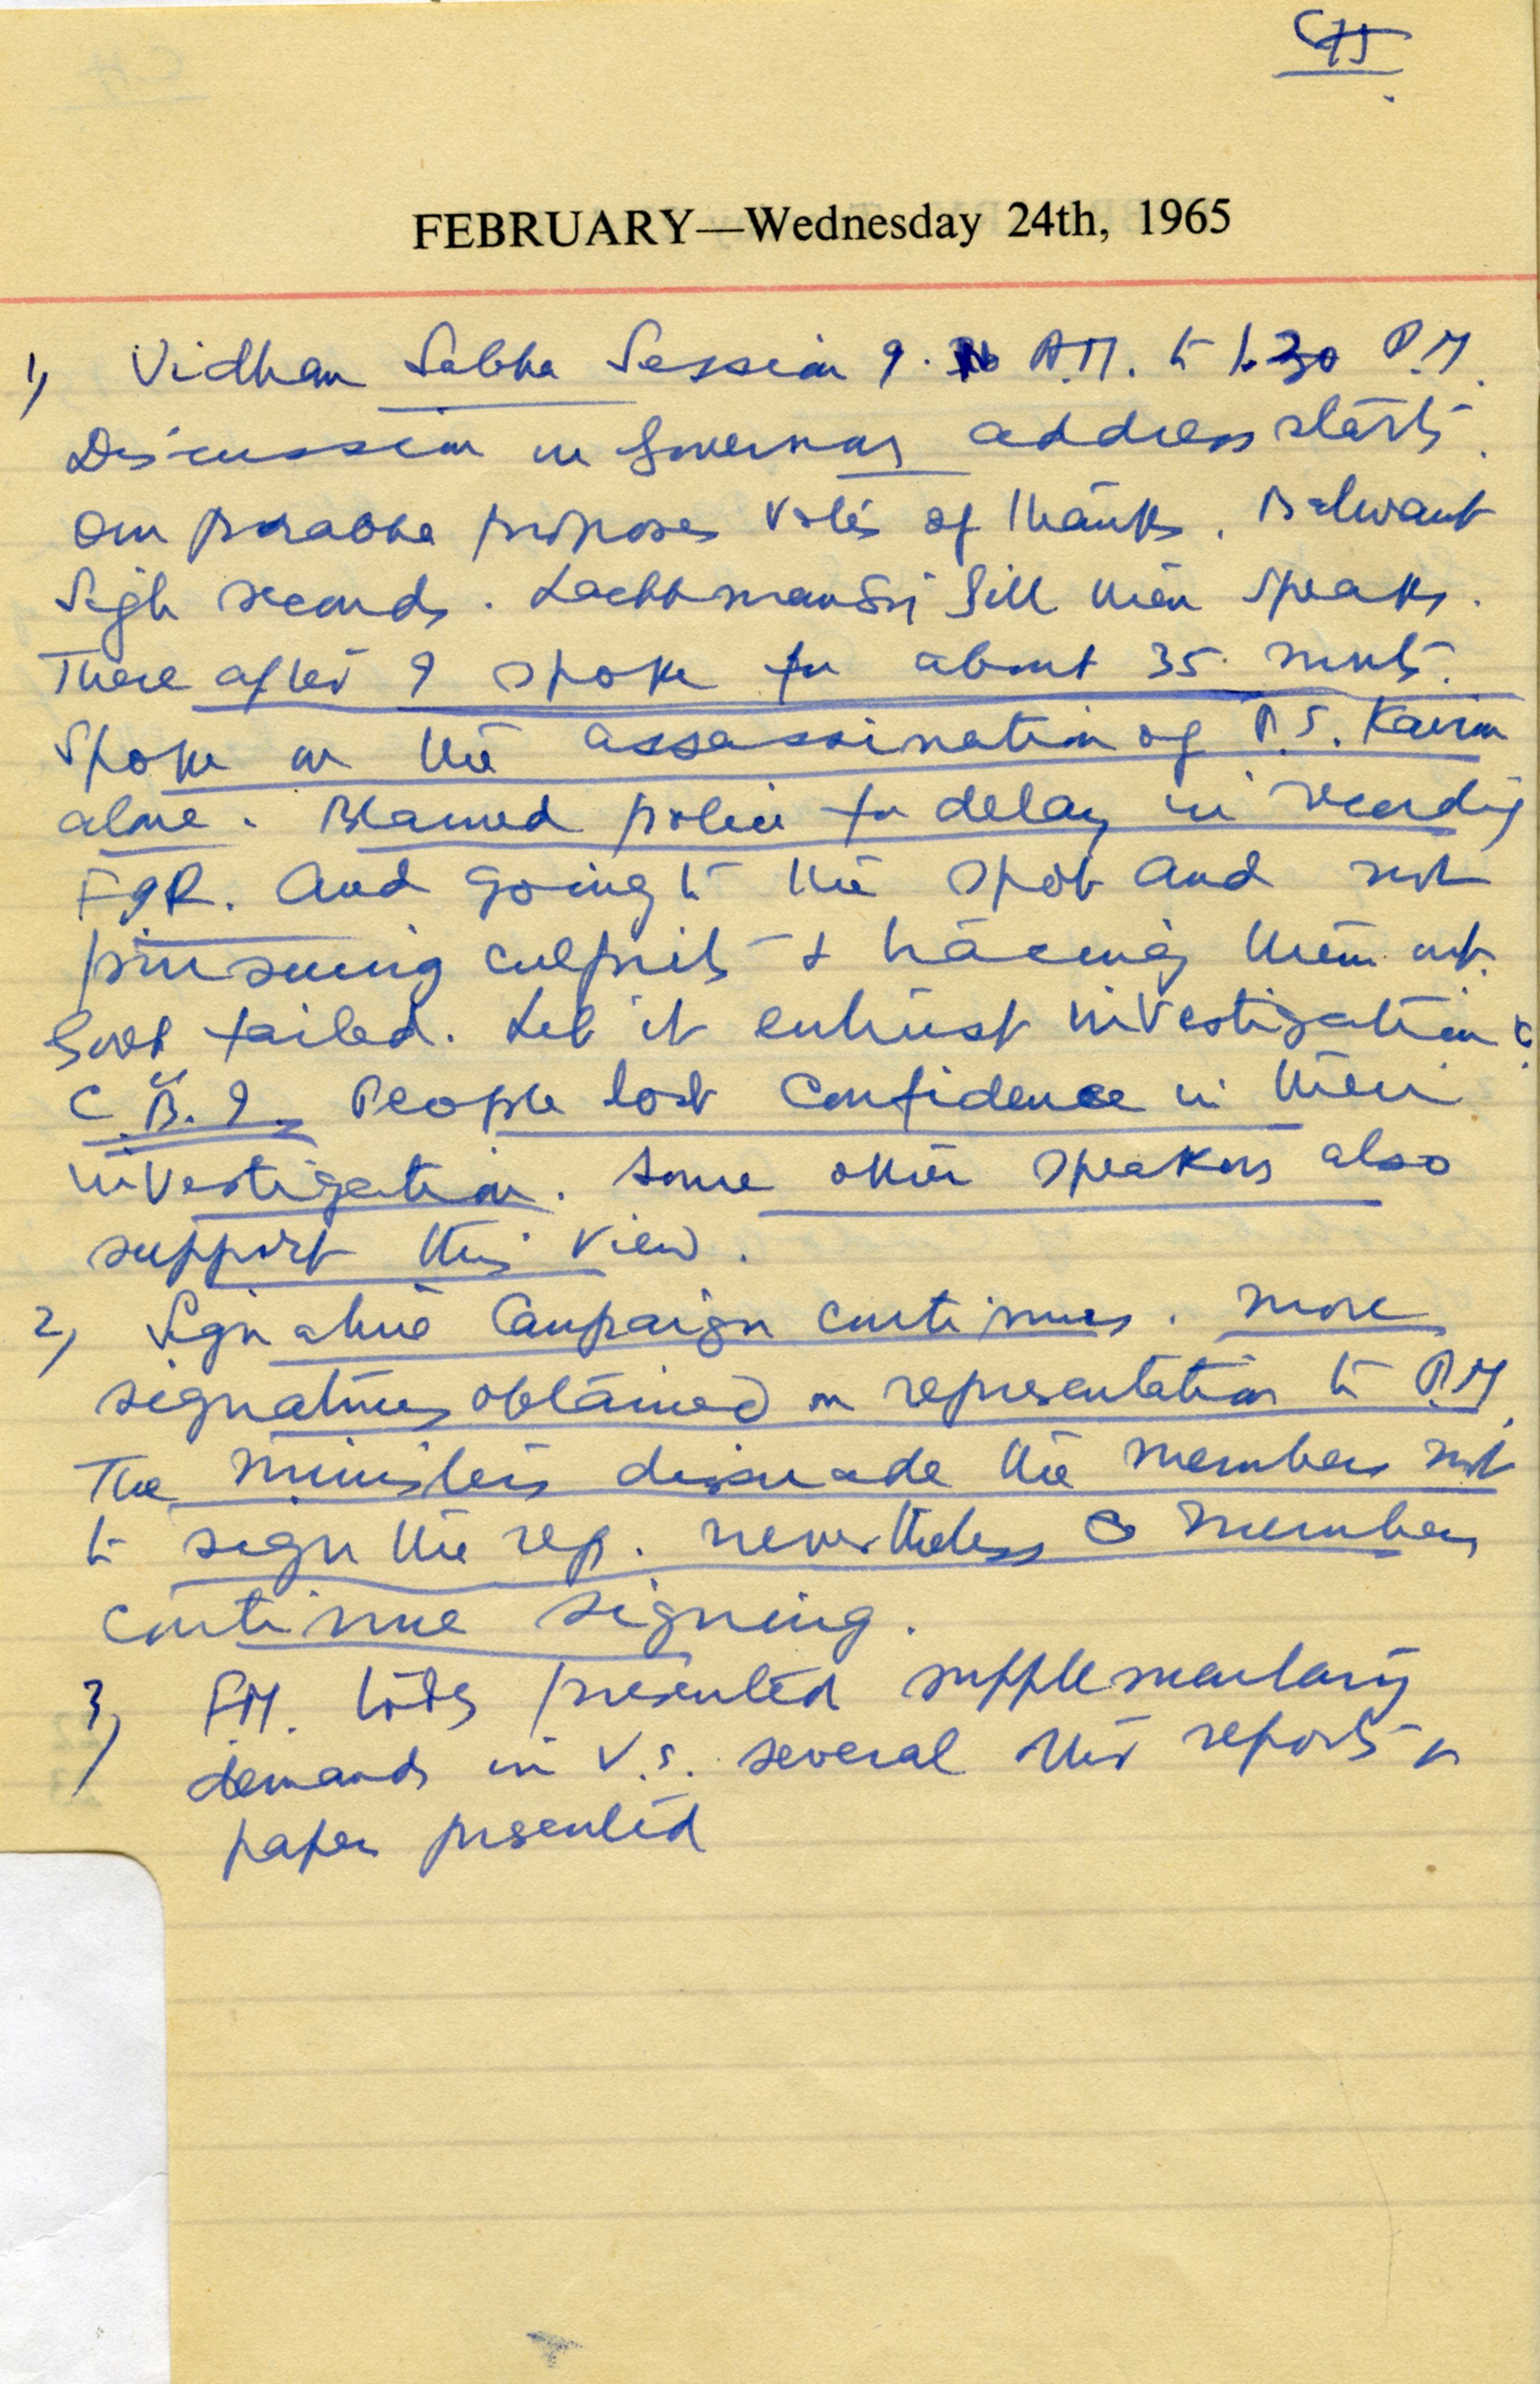 CH
FEBRUARY—Wednesday 24th, 1965
1) Vidhan Sabha Session 9. A.M. to 1.30 P.M.
Discussion on Governors address starts.
Om Prabha proposes votes of thanks. Balwant
Sigh seconds. Lachhman Gill then speaks.
There after I spoke for about 35 munts.
Spoke on the assassination of P.S. Kairon
alone. Blamed police for delay in recording
FIR. and going to the spot and not
pursueing culprits & traceing them out.
Govt failed. Let it entrust investigation to
C.B.I. People lost confidence in their
investigation. Some other speakers also
support this view.
2) Signature Campaign continues. more
signatures obtained on representation to P.M.
The ministers dissuade the members not
to sign the rep. nevertheless members
continue signing.
3) F.M. today presented supplementary
demands in V.S. several other reports &
paper presented